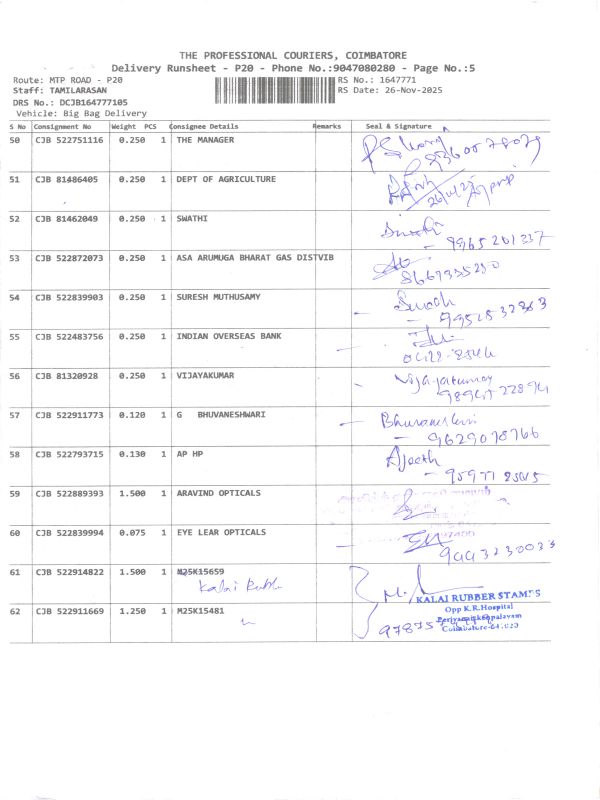 THE PROFESSIONAL COURIERS, COIMBATORE
Delivery Runsheet - P20 - Phone No.:9047080280 - Page No.:5
Route: MTP ROAD - P20 RS No.: 1647771
Staff: TAMILARASAN RS Date: 26-Nov-2025
DRS No.: DCJB164777105
Vehicle: Big Bag Delivery
S No Consignment No Weight PCS Consignee Details Remarks Seal & Signature
50 CJB 522751116 0.250 1 THE MANAGER
51 CJB 81486405 0.250 1 DEPT OF AGRICULTURE
52 CJB 81462049 0.250 1 SWATHI
- 9965201237
53 CJB 522872073 0.250 1 ASA ARUMUGA BHARAT GAS DISTVIB
54 CJB 522839903 0.250 1 SURESH MUTHUSAMY Suresh
55 CJB 522483756 0.250 1 INDIAN OVERSEAS BANK
56 CJB 81320928 0.250 1 VIJAYAKUMAR Vijayakumar
57 CJB 522911773 0.120 1 G BHUVANESHWARI Bhuvaneshwari
- 9629078766
58 CJB 522793715 0.130 1 AP HP Ajeeth
59 CJB 522889393 1.500 1 ARAVIND OPTICALS
60 CJB 522839994 0.075 1 EYE LEAR OPTICALS
61 CJB 522914822 1.500 1 M25K15659
Kalai Rubb
KALAI RUBBER STAMPS
62 CJB 522911669 1.250 1 M25K15481
Opp K.R.Hospital
Periyanaickenpalayam
Coimbatore-641 020